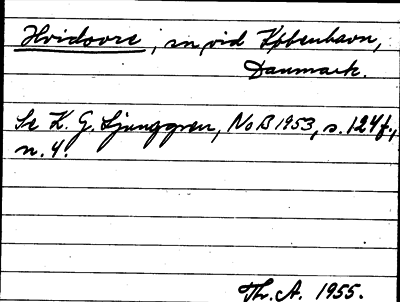 Hvidovre, sn vid København,
Danmark.
Se K. G. Ljunggren, NoB 1953, s. 124 f.,
n. 4.
Th. A. 1955.